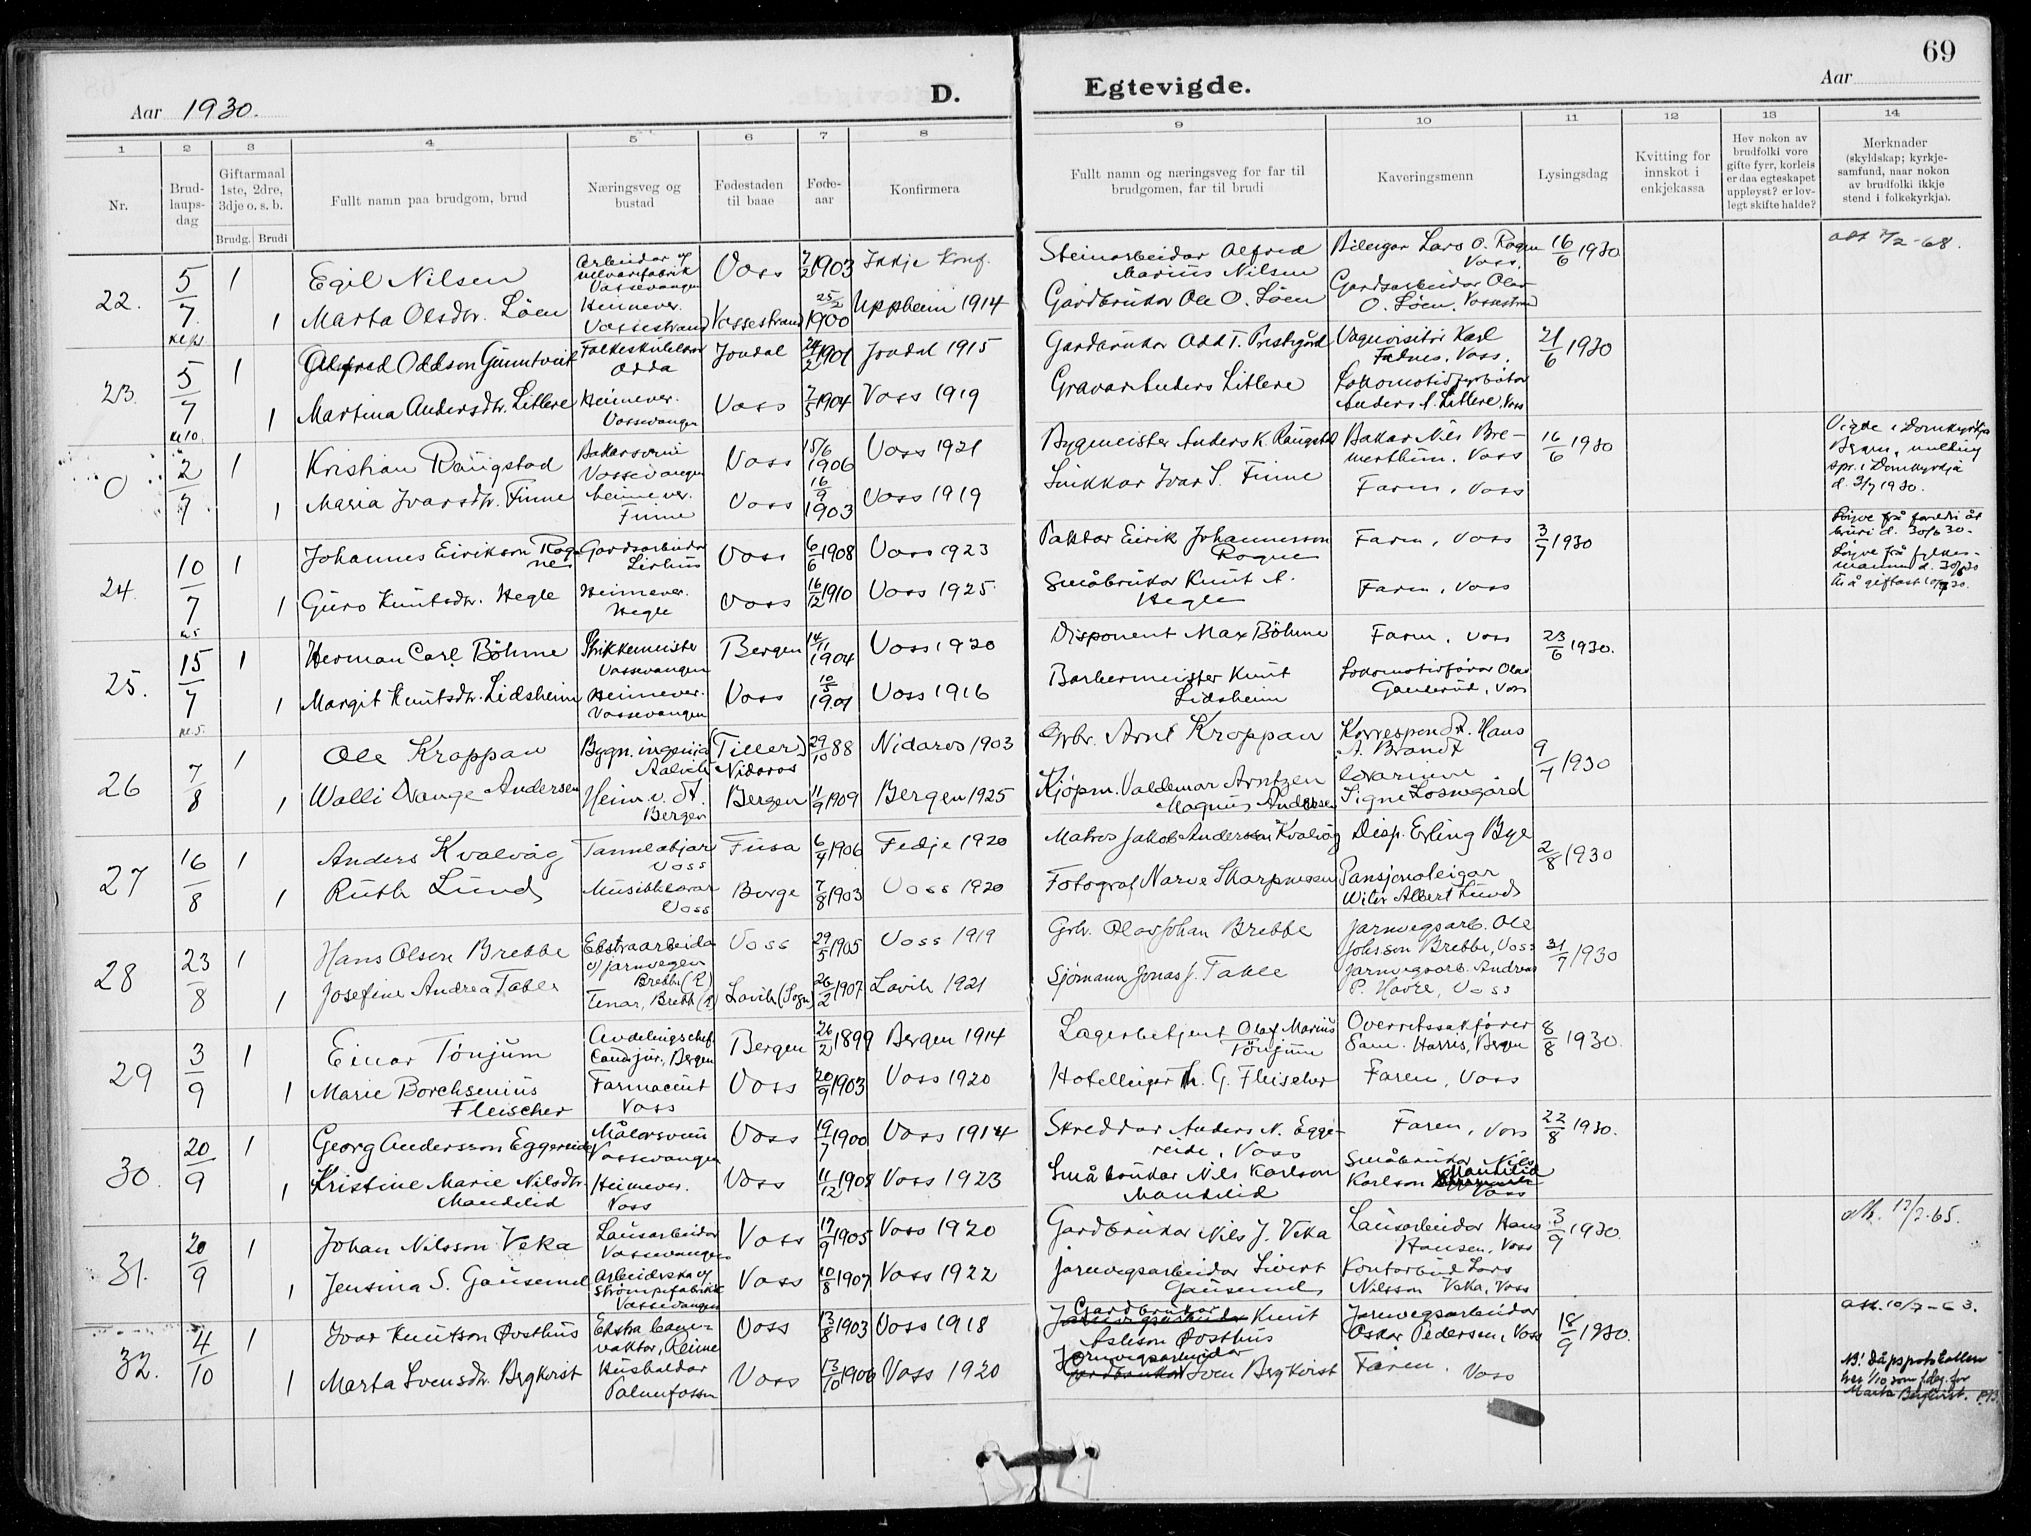 69
Aar 1930.
D. Egtevigde.
Aar
1 2 3 4 5 6 7 8 9 10 11 12 13 14
Nr.
Brud-
laups-
dag
Giftarmaal
1ste, 2dre,
3dje o. s. b.
Brudg. Brudi
Fullt namn paa brudgom, brud
Næringsveg og
bustad
Fødestaden
til baae
Føde-
aar
Konfirmera
Fullt namn og næringsveg for far til
brudgomen, far til brudi
Kaveringsmenn
Lysingsdag
Kvitting for
innskot i
enkjekassa
Hev nokon av
brudfolki vore
gifte fyrr, korleis
er daa egteskapet
uppløyst? er lov-
legt skifte halde?
Merknader
(skyldskap; kyrkje-
samfund, naar nokon
av brudfolki ikkje
stend i folkekyrkja).
22. 5/7 1 Egil Nilsen
Arbeidar
Vossevangen
Voss 1903 Ikkje Konf.
Steinarbeidar Alfred
Marius Nilsen
Bileigar Lars O. Rogne
Voss.
16/6 1930
1 Marta Olsdtr. Löen
Heimever.
Vossestrand
Vossestrand 25/2 1900 Uppheim 1914
Gardbrukar Ole O. Löen
Gardsarbeidar Olav
O. Löen, Vossestrand
23. 5/7 1
Odda
Jondal 1901 Jondal 1915
Gardbrukar Odd T.
Karl
Voss.
21/6 1930
1 Martina Andersdtr. Litlere
Heimever.
Vossevangen
Voss 1904 Voss 1919
Gravar Anders Litlere
Anders A. Litlere, Voss
0 2/7 1 Kristian Rångstad
Bakarsvein
Vossevangen
Voss 15/6 1906 Voss 1921
Bygmeister Anders K. Rångstad
Bakar Nils Bre-
Voss
16/6 1930
Vigde i Domkyrkja
Bergen, melding
spr. i Domkyrkja
d. 3/7 1930.
1 Maria Ivarsdtr. Finne
heimever.
Finne
Voss 16/9 1903 Voss 1919
Snikkar Ivar S. Finne
Faren, Voss
24. 10/7 1 Johannes Eirikson Rog-
ne
Gardsarbeidar
Voss 6/6 1908 Voss 1923
Paktar Eirik Johannesson
Rogne
Faren, Voss
3/7 1930
Löyve frå foreldri åt
bruri d. 30/6 30.
Löyve frå fylkes-
mannen d. 30/6 30
1 Guro Knutsdtr. Hegle
Heimever.
Hegle
Voss 16/12 1910 Voss 1925
Småbrukar Knut A.
Hegle
Faren, Voss
25. 15/7 1 Herman Carl Böhme
Strikkemeister
Vossevangen
Bergen 14/11 1904 Voss 1920
Disponent Max Böhme
Faren, Voss
23/6 1930.
1 Margit Knutsdtr. Lidsheim
Heimever.
Vossevangen
Voss 1901 Voss 1916
Barbermeister Knut
Lidsheim
Lokomotivförar Olav
Voss
26 7/8 1 Ole Kroppan
Bygn. ingeniør
Aalvik
(Tiller)
Nidaros
29/10 88 Nidaros 1903
Grbr. Arnt Kroppan
Korrespondt. Hans
A. Brandt
9/7 1930
1 Walli Drange Andersen
Heim. v. dt.
Bergen
Bergen 11/9 1909 Bergen 1925
Kjöpm. Valdemar Arntzen
Magnus Andersen
Signe Losnegård
27 16/8 1 Anders Kvalvåg
Voss
Fusa 1906 Fedje 1920
Matros Jakob Anderson Kvalvåg
Disp. Erling Bye
2/8 1930
1 Ruth Lund
Musikklærar
Voss
Borge 7/8 1903 Voss 1920
Fotograf Narve Skarpmoen
Pansjonateigar
Albert Lund
28 23/8 1 Hans Olson Brekke
Ekstraarbeidar
v/jarnvegen
Brekke
Voss 29/5 1905 Voss 1919
Grbr. Olav Johan Brekke
Jarnvegsarb. Ole
Johsson Brekke, Voss
31/7 1930
1 Josefine Andrea Takle
Lavik (Sogn) 26/2 1907 Lavik 1921
Sjömann Jonas J. Takle
Jarnvegsarb. Andreas
P. Havre, Voss
29 3/9 1 Einar Tönjum
Avdelingschef
Cand. jur., Bergen
Bergen 26/2 1899 Bergen 1914
Lagerbetjent Olaf Marius
Tönjum
Overretssakförer
Sam. Harris, Bergen
8/8 1930.
1 Marie Borchsenius
Fleischer
Farmaceut
Voss
Voss 20/9 1903 Voss 1920
Hotelleigar Th. G. Fleischer
Faren, Voss
30. 20/9 1 Georg Andersson Eggereide
Målarsvein
Vossevangen
Voss 19/7 1900 Voss 1914
Skreddar Anders N. Egge-
reide, Voss
Faren, Voss
22/8 1930.
1 Kristine Marie Nilsdtr.
Mandelid
Heimever.
Voss
Voss 11/12 1908 Voss 1923
Småbrukar Nils Karlson
Mandelid
Småbrukar Nils
Karlson Mandelid
Voss
31. 20/9 1 Johan Nilsson Veka
Lausarbeidar
Vossevangen
Voss 17/9 1905 Voss 1920
Gardbrukar Nils J. Veka
Lausarbeidar Hans
Hansen, Voss
3/9 1930.
1 Jensina S. Gausemel
Arbeiderska v/
Strömpefabrikk
Vossevangen
Voss 10/8 1907 Voss 1922
Jarnvegsarbeidar Sivert
Gausemel
Kontorbud Lars
Nilsson Veka, Voss
32. 4/10 1 Ivar Knutson Övsthus
Voss 13/8 1903 Voss 1918
Gardbrukar
Knut
Övsthus
Jarnvegsarbeidar
Oskar Pedersen, Voss
18/9 1930.
1 Marta Svensdtr. Bergkvist
Hushaldar
Palmafossen
Voss 13/10 1906 Voss 1920
Jarnvegsarbeidar
Sven Bergkvist
Faren, Voss